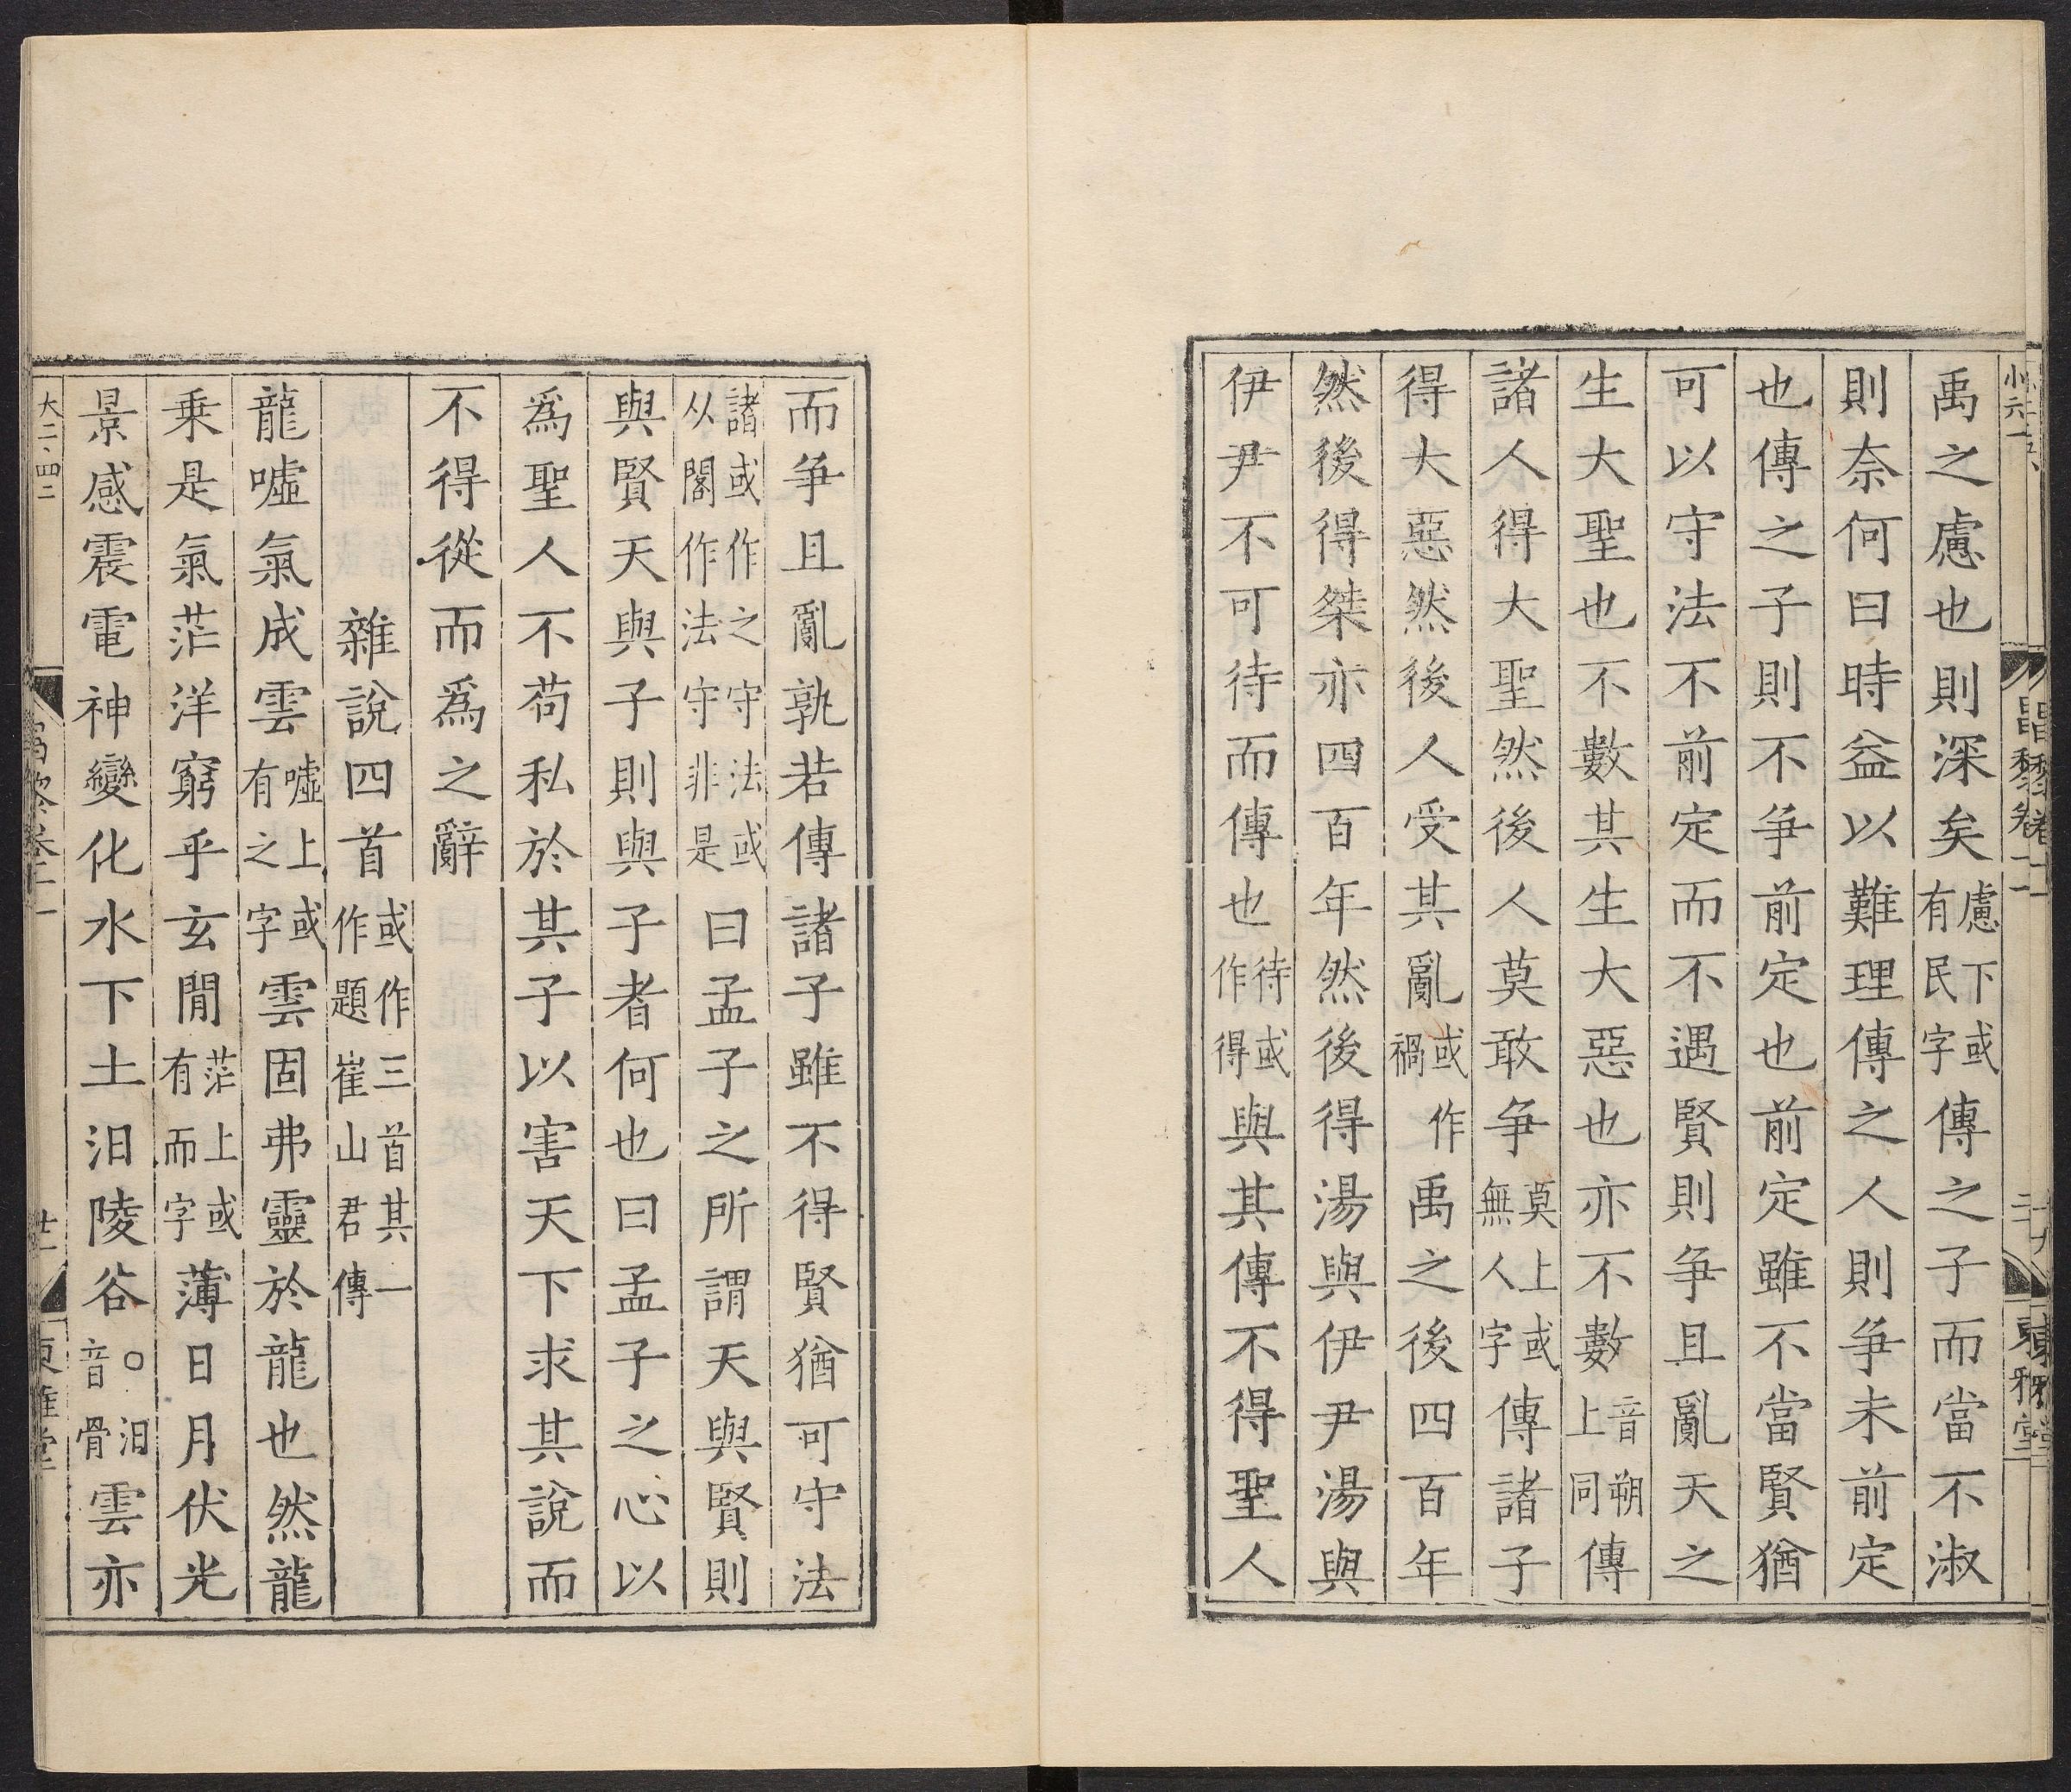 禹之慮也則深矣慮下或有民字傳之子而當不淑
則奈何曰時益以難理傳之人則爭未前定
也傳之子則不爭前定也前定雖不當賢猶
可以守法不前定而不遇賢則爭且亂天之
生大聖也不數其生大惡也亦不數音朔上同傳
諸人得大聖然後人莫敢爭莫上或無人字傳諸子
得大惡然後人受其亂或作禍禹之後四百年
然後得桀亦四百年然後得湯與伊尹湯與
伊尹不可待而傳也待或作得與其傳不得聖人
而爭且亂孰若傳諸子雖不得賢猶可守法
諸或作之守法或从閣作法守非是曰孟子之所謂天與賢則
與賢天與子則與子者何也曰孟子之心以
爲聖人不苟私於其子以害天下求其說而
不得從而爲之辭
雜說四首或作三首其一作題崔山君傳
龍噓氣成雲噓上或有之字雲固弗靈於龍也然龍
乗是氣茫洋窮乎玄閒茫上或有而字薄日月伏光
景感震電神變化水下土汩陵谷○汩音骨雲亦
昌黎卷十一
東雅堂
大二四二
昌黎卷十一
廿一
東雅堂